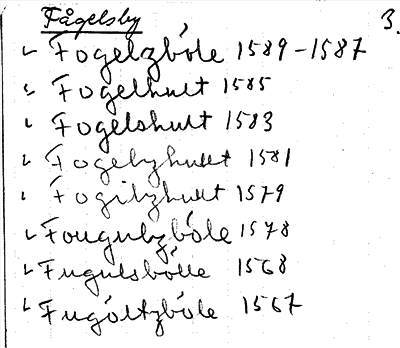 Fågelsby 3.
Fogelzbóle 1589-1587
Fogelhult 1585
Fogelshult 1583
Fogelzhullt 1581
Fogilzhullt 1579
Fougulzbóle 1578
Fugulsbólle 1568
Fugóltzbóle 1567